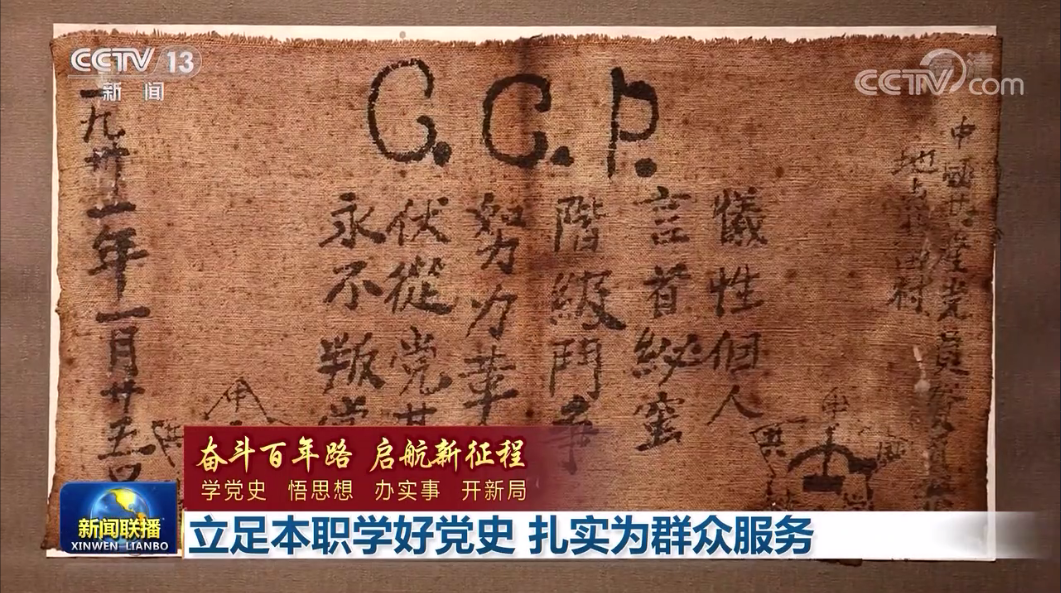 CCTV 13
新闻
CCTV com
高清
C.C.P.
中國共產党員
地点
儀性但人
言首
階級鬥争
努力革
伏從党其
永不叛党
一九卅一年一月廿五
中
中
奋斗百年路 启航新征程
学党史 悟思想 办实事 开新局
新闻联播
XINWEN LIANBO
立足本职学好党史 扎实为群众服务